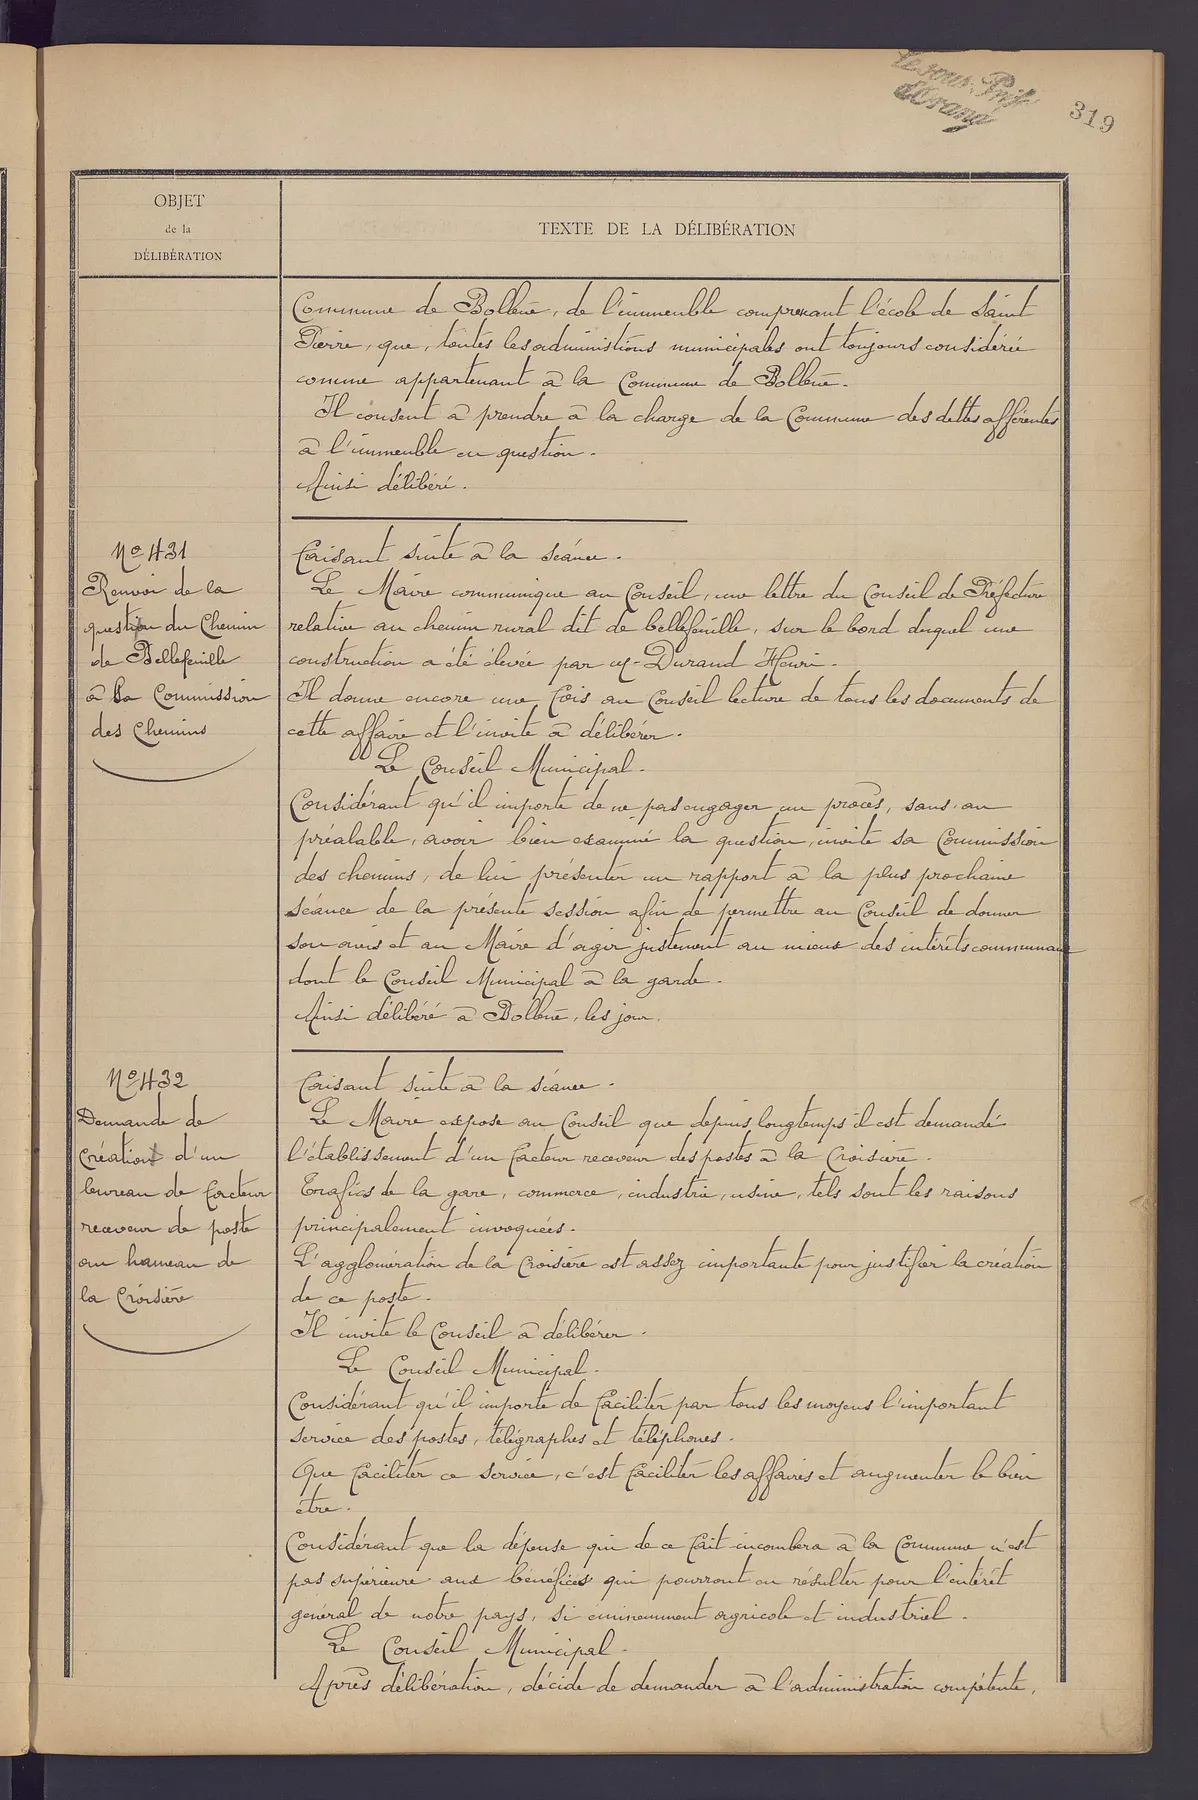 Le sous-Préf
d'Orang
319
OBJET
de la
DÉLIBÉRATION
TEXTE DE LA DÉLIBÉRATION
Commune de Bollène, de l'immeuble comprenant l'école de Saint
Pierre, que, toutes les administions municipales ont toujours considérée
comme appartenant à la Commune de Bollène.
Il consent à prendre à la charge de la Commune des dettes afférentes
à l'immeuble en question.
Ainsi délibéré.
No 431
Renvoi de la
question du Chemin
de Bellefeuille
à la Commission
des Chemins
Faisant suite à la séance.
Le Maire communique au Conseil, une lettre du Conseil de Préfecture
relative au chemin rural dit de bellefeuille, sur le bord duquel une
construction a été élevée par M. Durand Henri.
Il donne encore une fois au Conseil lecture de tous les documents de
cette affaire et l'invite à délibérer.
Le Conseil Municipal.
Considérant qu'il importe de ne pas engager un procès, sans, au
préalable, avoir bien examiné la question, invite sa Commission
des chemins, de lui présenter un rapport à la plus prochaine
séance de la présente session afin de permettre au Conseil de donner
son avis et au Maire d'agir justement au mieux des intérêts communaux
dont le Conseil Municipal à la garde.
Ainsi délibéré à Bollène, les jour.
No 432
Demande de
Création d'un
bureau de facteur
receveur de poste
au hameau de
la Croisière
Faisant suite à la séance.
Le Maire expose au Conseil que depuis longtemps il est demandé
l'établissement d'un facteur receveur des postes à la Croisière.
Trafics de la gare, commerce, industrie, usine, tels sont les raisons
principalement invoquées.
L'agglomération de la Croisière est assez importante pour justifier la création
de ce poste.
Il invite le Conseil à délibérer.
Le Conseil Municipal.
Considérant qu'il importe de faciliter par tous les moyens l'important
service des postes, télégraphes et téléphones.
Que faciliter ce service, c'est faciliter les affaires et augmenter le bien
être.
Considérant que la dépense qui de ce fait incombera à la Commune n'est
pas supérieure aux bénéfices qui pourront en résulter pour l'intérêt
général de notre pays, si éminemment agricole et industriel.
Le Conseil Municipal.
Après délibération, décide de demander à l'administration compétente,